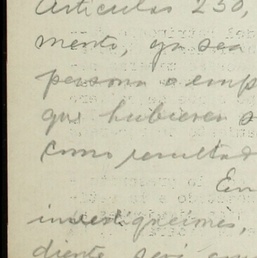 Artículos 230,
mento, ya sea
persona o emp
que hubieren s
como resultad
En
investigaciones,
diente será